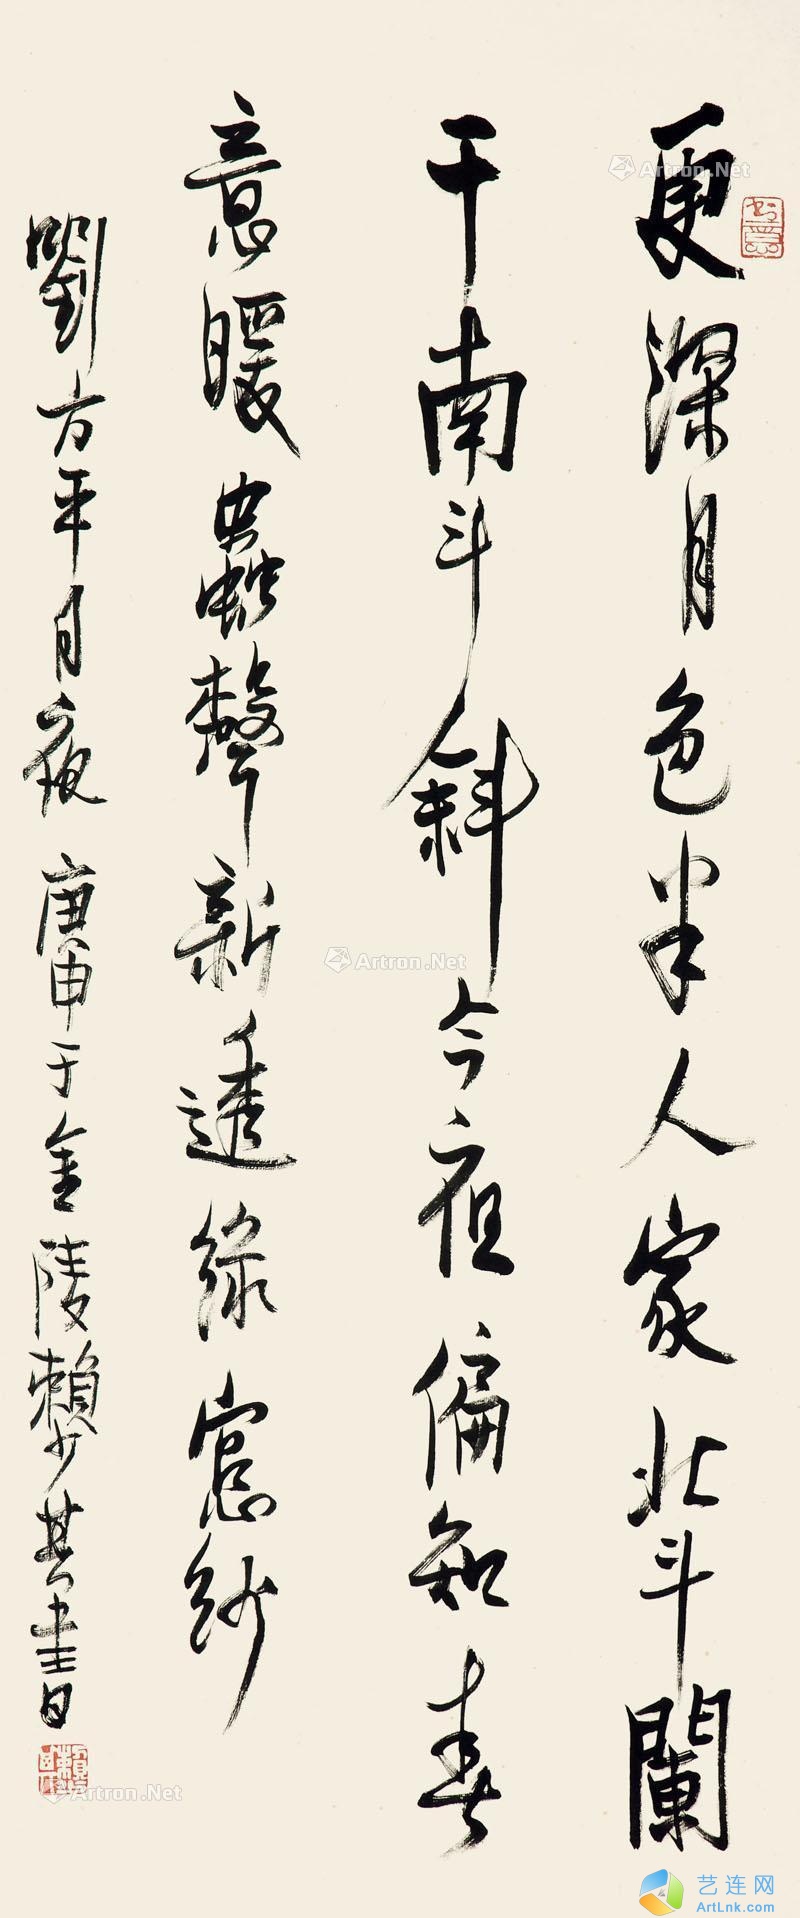 更深月色半人家北斗闌
干南斗斜今夜偏知春
意暖蟲聲新透綠窗紗
劉方平月夜 庚申于金陵賴少其書
Artron.Net
Artron.Net
Artron.Net
艺连网
ArtLnk.com